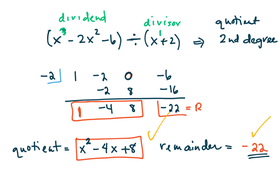 dividend divisor quotient
(x³ - 2x² - 6) ÷ (x¹ + 2) ⇒ 2nd degree
-2 | 1 -2 0 -6
-2 8 -16
1 -4 8 -22 = R
quotient = x² - 4x + 8 remainder = -22